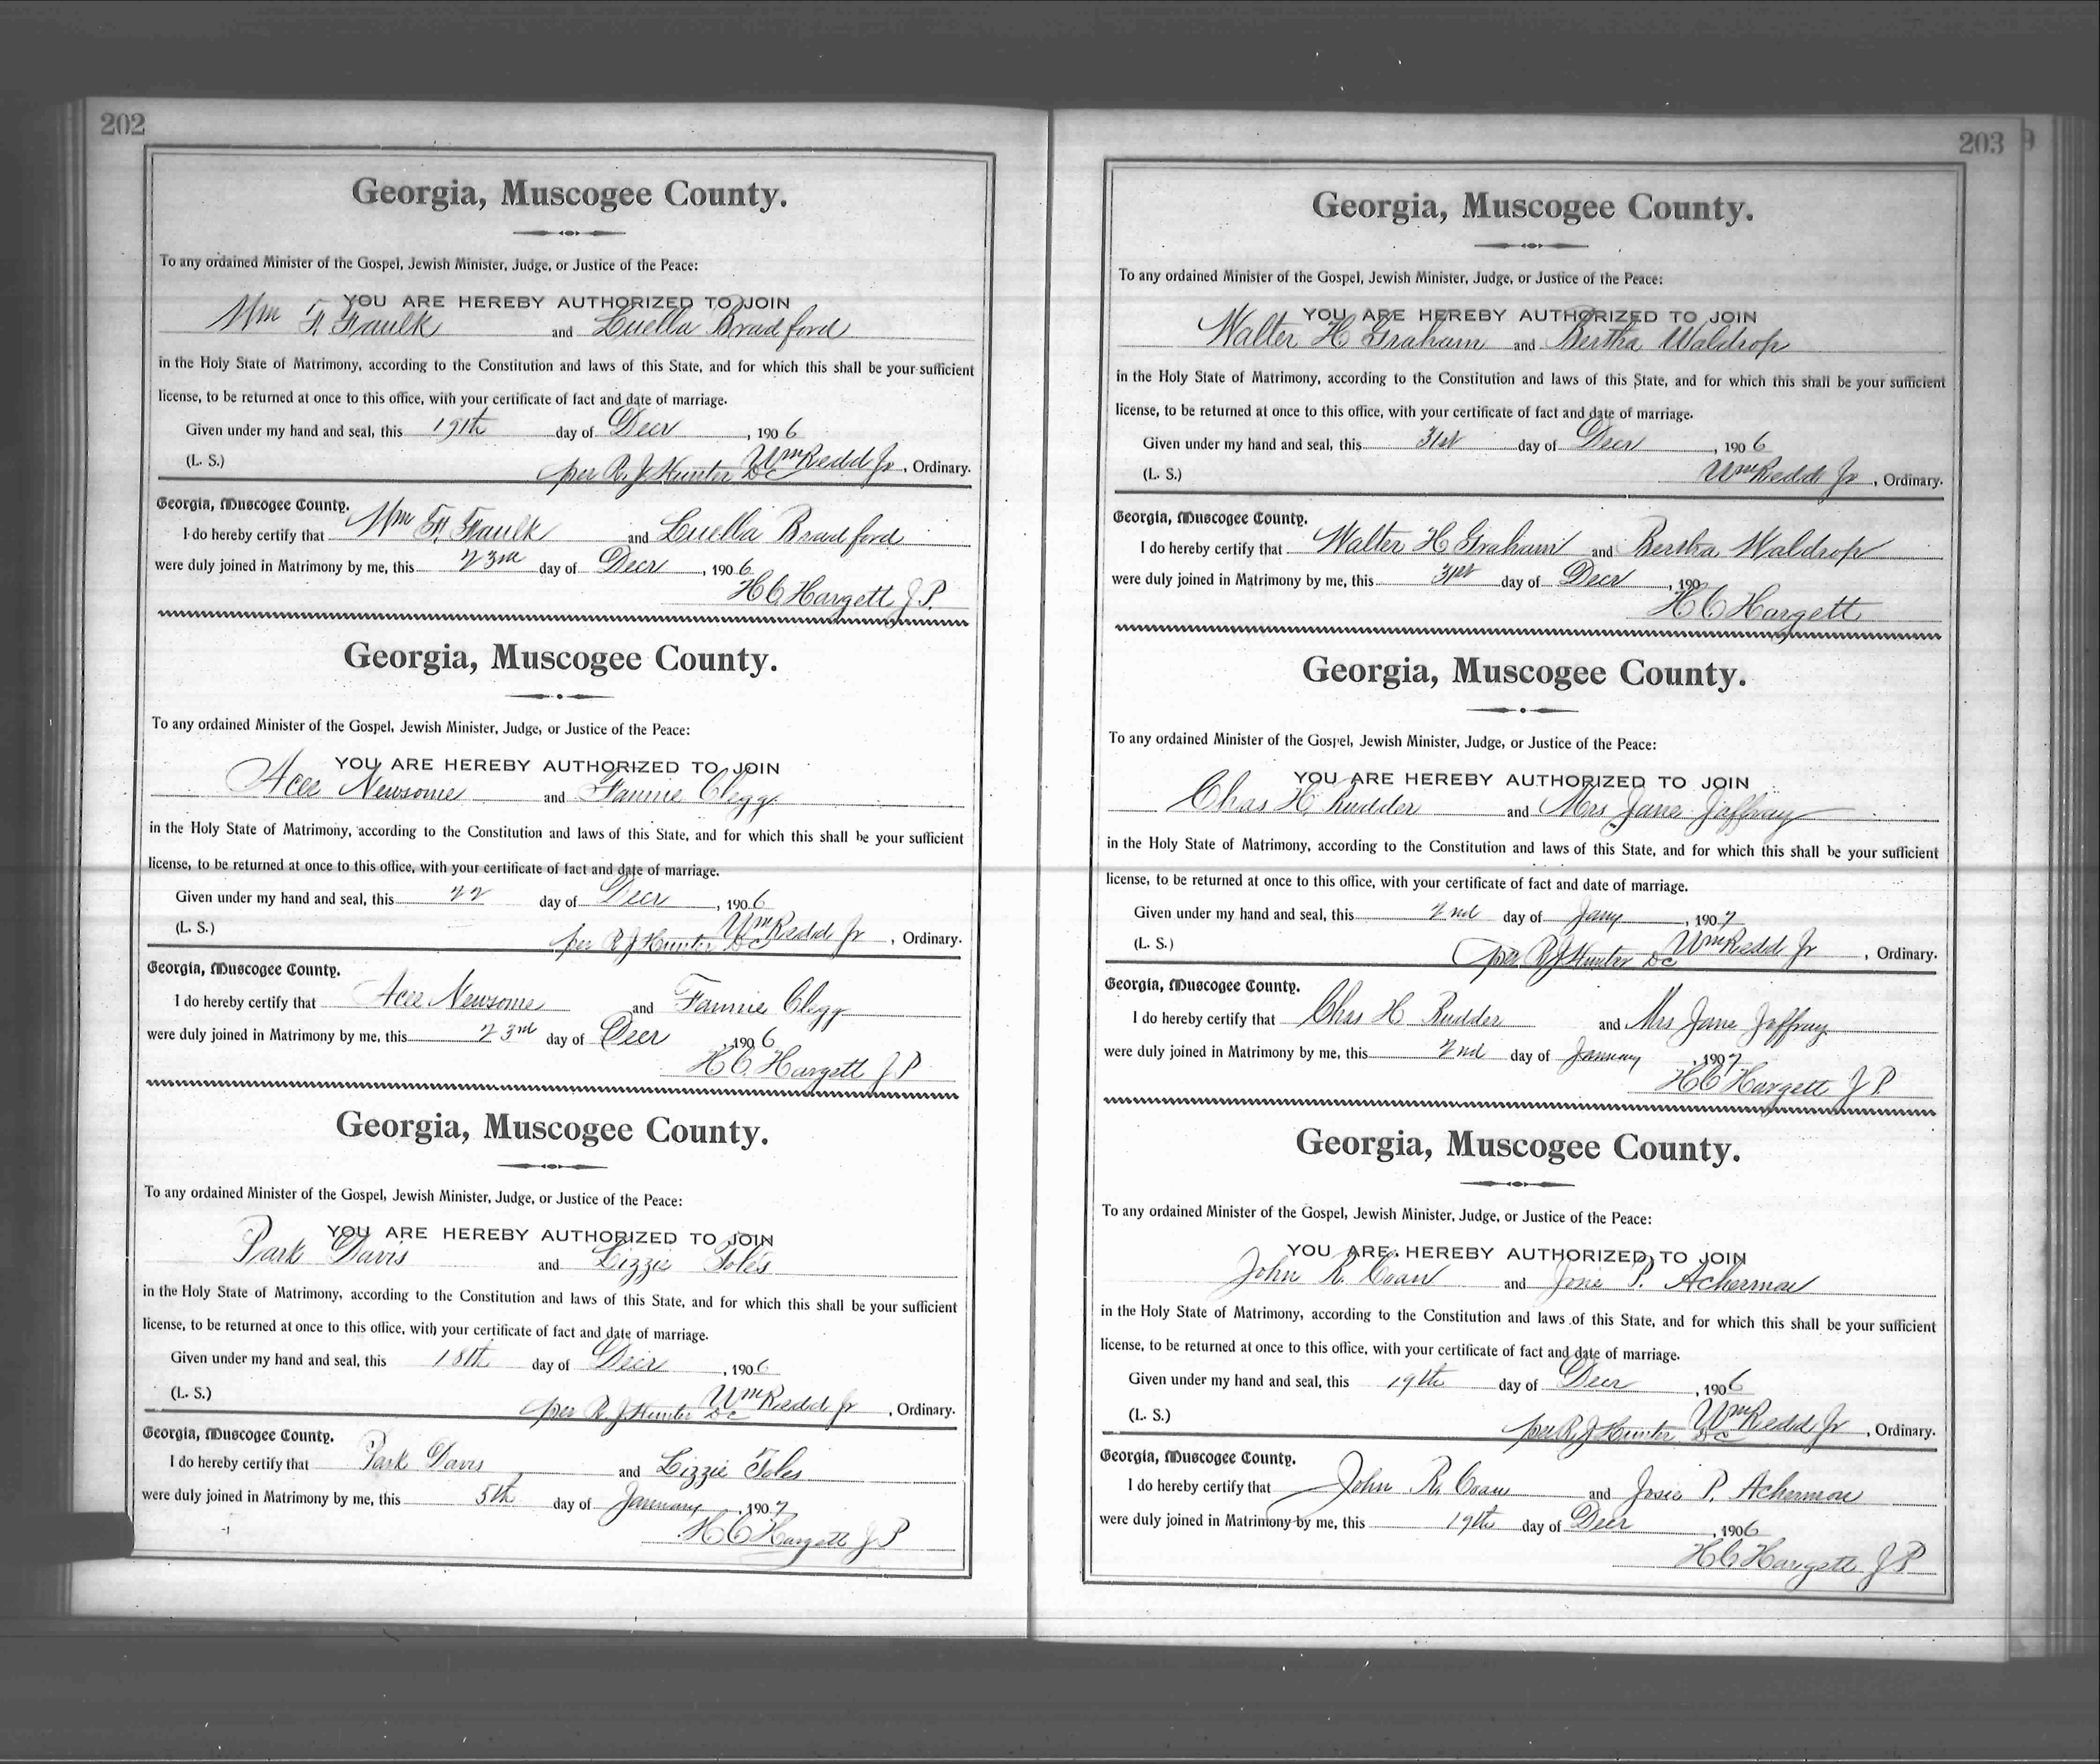 202
Georgia, Muscogee County.
To any ordained Minister of the Gospel, Jewish Minister, Judge, or Justice of the Peace:
YOU ARE HEREBY AUTHORIZED TO JOIN
Wm F. Faulk and Luella Bradford
in the Holy State of Matrimony, according to the Constitution and laws of this State, and for which this shall be your sufficient
license, to be returned at once to this office, with your certificate of fact and date of marriage.
Given under my hand and seal, this 19th day of Decr , 1906
(L. S.) per R. J. Hunter DC Wm Redd Jr , Ordinary.
Georgia, Muscogee County.
I do hereby certify that Wm F. Faulk and Luella Bradford
were duly joined in Matrimony by me, this 23rd day of Decr , 1906
H C Hargett J P.
Georgia, Muscogee County.
To any ordained Minister of the Gospel, Jewish Minister, Judge, or Justice of the Peace:
YOU ARE HEREBY AUTHORIZED TO JOIN
Acee Newsome and Fannie Clegg
in the Holy State of Matrimony, according to the Constitution and laws of this State, and for which this shall be your sufficient
license, to be returned at once to this office, with your certificate of fact and date of marriage.
Given under my hand and seal, this 22 day of Decr , 1906
(L. S.) per R J Hunter DC Wm Redd Jr , Ordinary.
Georgia, Muscogee County.
I do hereby certify that Acee Newsome and Fannie Clegg
were duly joined in Matrimony by me, this 23rd day of Decr , 1906
H C. Hargett J P
Georgia, Muscogee County.
To any ordained Minister of the Gospel, Jewish Minister, Judge, or Justice of the Peace:
YOU ARE HEREBY AUTHORIZED TO JOIN
Park Davis and Lizzie Toles
in the Holy State of Matrimony, according to the Constitution and laws of this State, and for which this shall be your sufficient
license, to be returned at once to this office, with your certificate of fact and date of marriage.
Given under my hand and seal, this 18th day of Decr , 1906
(L. S.) per R. J Hunter DC Wm Redd Jr , Ordinary.
Georgia, Muscogee County.
I do hereby certify that Park Davis and Lizzie Toles
were duly joined in Matrimony by me, this 5th day of January , 1907
H C Hargett J P
203
Georgia, Muscogee County.
To any ordained Minister of the Gospel, Jewish Minister, Judge, or Justice of the Peace:
YOU ARE HEREBY AUTHORIZED TO JOIN
Walter H Graham and Bertha Waldrop
in the Holy State of Matrimony, according to the Constitution and laws of this State, and for which this shall be your sufficient
license, to be returned at once to this office, with your certificate of fact and date of marriage.
Given under my hand and seal, this 31st day of Decr , 1906
(L. S.) Wm Redd Jr , Ordinary.
Georgia, Muscogee County.
I do hereby certify that Walter H Graham and Bertha Waldrop
were duly joined in Matrimony by me, this 31st day of Decr , 190
H C Hargett
Georgia, Muscogee County.
To any ordained Minister of the Gospel, Jewish Minister, Judge, or Justice of the Peace:
YOU ARE HEREBY AUTHORIZED TO JOIN
Chas H. Rudder and Mrs Jane Jaffray
in the Holy State of Matrimony, according to the Constitution and laws of this State, and for which this shall be your sufficient
license, to be returned at once to this office, with your certificate of fact and date of marriage.
Given under my hand and seal, this 2nd day of Jany , 1907
(L. S.) per R J Hunter DC Wm Redd Jr , Ordinary.
Georgia, Muscogee County.
I do hereby certify that Chas H Rudder and Mrs Jane Jaffray
were duly joined in Matrimony by me, this 2nd day of January , 1907
H C Hargett J P.
Georgia, Muscogee County.
To any ordained Minister of the Gospel, Jewish Minister, Judge, or Justice of the Peace:
YOU ARE HEREBY AUTHORIZED TO JOIN
John R. and Josie P. Ackermon
in the Holy State of Matrimony, according to the Constitution and laws of this State, and for which this shall be your sufficient
license, to be returned at once to this office, with your certificate of fact and date of marriage.
Given under my hand and seal, this 19th day of Decr , 1906
(L. S.) per R. J Hunter DC Wm Redd Jr , Ordinary.
Georgia, Muscogee County.
I do hereby certify that John R. and Josie P. Ackermon
were duly joined in Matrimony by me, this 19th day of Decr , 1906
H C Hargett J P